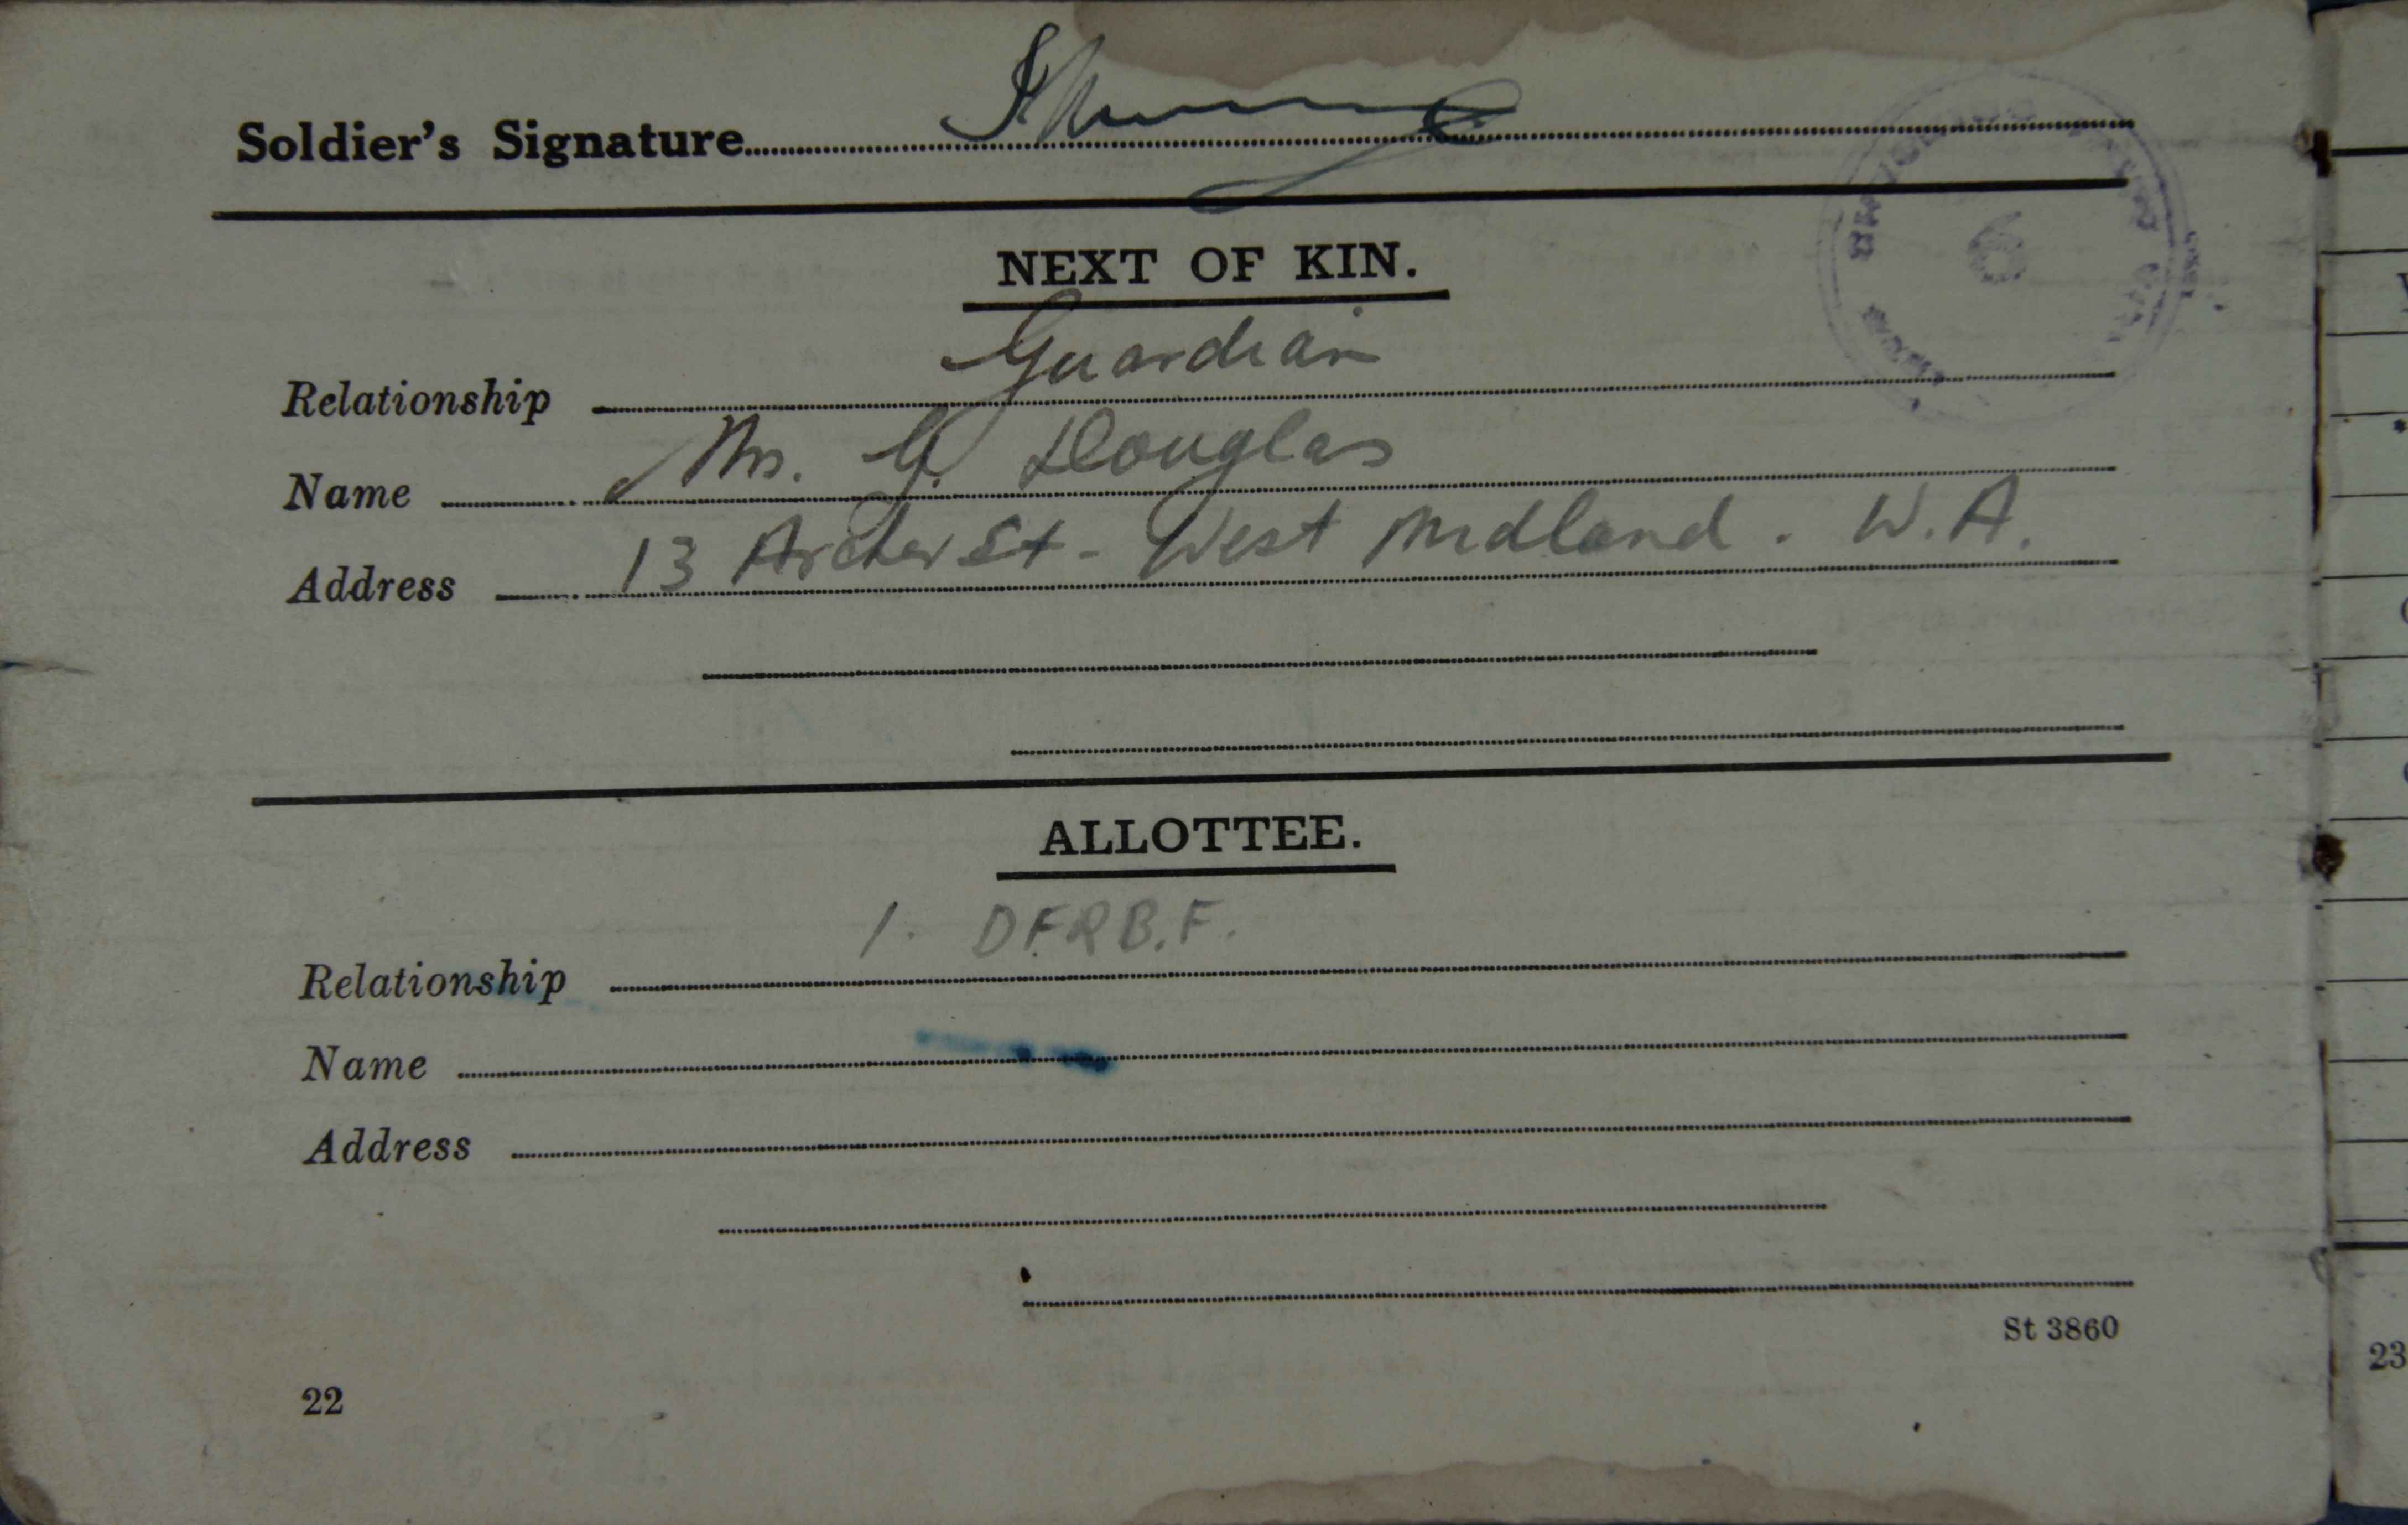 Soldier's Signature
NEXT OF KIN.
Relationship Guardian
Name Mrs. G. Douglas
Address 13 Archer St - West Midland. W.A.
ALLOTTEE.
Relationship 1. D.F.R.B.F.
Name
Address
St 3860
22
23